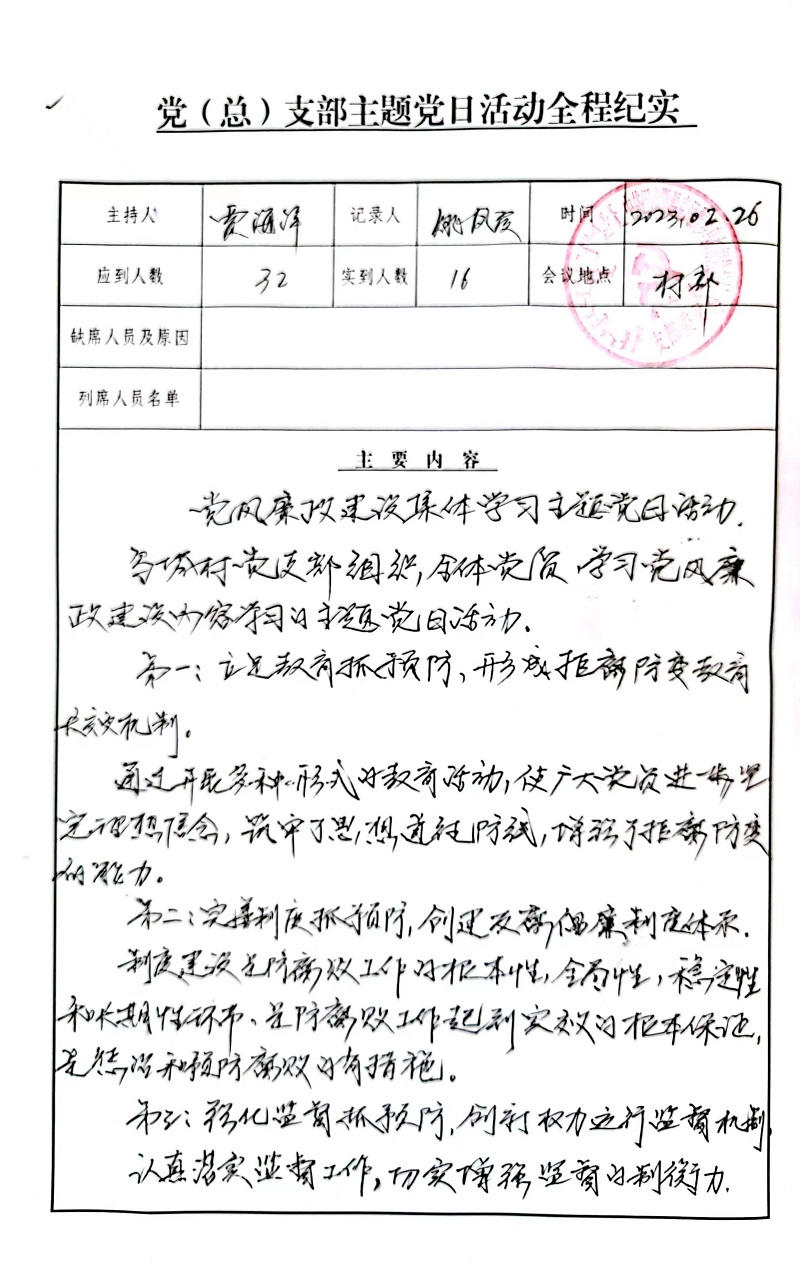 党（总）支部主题党日活动全程纪实
主持人 贾海洋 记录人 姚凤彦 时间 2023.02.26
应到人数 32 实到人数 16 会议地点 村部
缺席人员及原因
列席人员名单
主要内容
党风廉政建设集体学习主题党日活动.
村党支部组织,全体党员学习党风廉
政建设内容学习的主题党日活动.
第一：立足教育抓预防,形成拒腐防变教育
长效机制。
通过开展多种形式的教育活动,使广大党员进一步坚
定理想信念,筑牢了思想道德防线,增强了拒腐防变
的能力。
第二：完善制度抓预防,创建反腐倡廉制度体系.
制度建设是防腐败工作的根本性,全局性,稳定性
和长期性环节、是防腐败工作起到实效的根本保证,
是惩治和预防腐败的有措施。
第三：强化监督抓预防,创新权力运行监督机制,
认真落实监督工作,切实增强监督的制衡力.